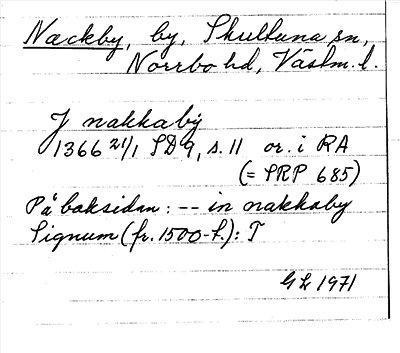 Nackby, by, Skultuna sn,
Norrbo hd, Västm. l.
J nakkaby
1366 21/1 SD 9, s. 11 or. i RA
(= SRP 685)
På baksidan: -- in nakkaby
Signum (fr. 1500-t.): T
GL 1971